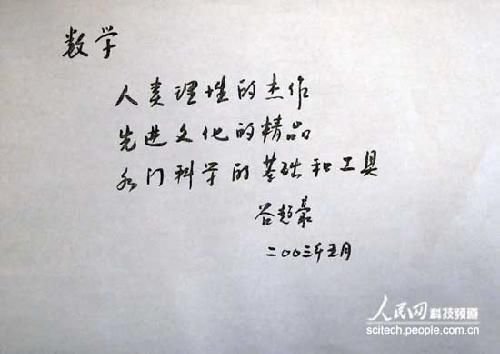 数学
人类理性的杰作
先进文化的精品
各门科学的基础和工具
谷超豪
二〇〇三年五月
人民网 科技频道
scitech.people.com.cn